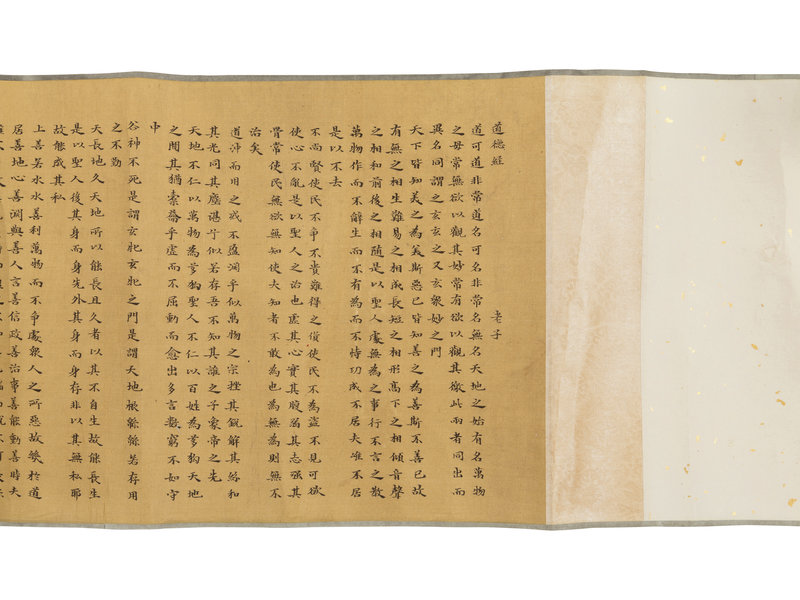 道德經 老子
道可道非常道名可名非常名無名天地之始有名萬物
之母常無欲以觀其妙常有欲以觀其徼此兩者同出而
異名同謂之玄玄之又玄眾妙之門
天下皆知美之為美斯惡已皆知善之為善斯不善已故
有無之相生難易之相成長短之相形高下之相傾音聲
之相和前後之相隨是以聖人處無為之事行不言之教
萬物作而不辭生而不有為而不恃功成不居夫唯不居
是以不去
不尚賢使民不爭不貴難得之貨使民不為盜不見可欲
使心不亂是以聖人之治也虛其心實其腹弱其志强其
骨常使民無欲無知使夫知者不敢為也為無為則無不
治矣
道沖而用之或不盈淵乎似萬物之宗挫其銳解其紛和
其光同其塵湛兮似若存吾不知其誰之子象帝之先
天地不仁以萬物為芻狗聖人不仁以百姓為芻狗天地
之間其猶橐籥乎虛而不屈動而愈出多言數窮不如守
中
谷神不死是謂玄牝玄牝之門是謂天地根綿綿若存用
之不勤
天長地久天地所以能長且久者以其不自生故能長生
是以聖人後其身而身先外其身而身存非以其無私耶
故能成其私
上善若水水善利萬物而不爭處眾人之所惡故幾於道
居善地心善淵與善人言善信政善治事善能動善時夫